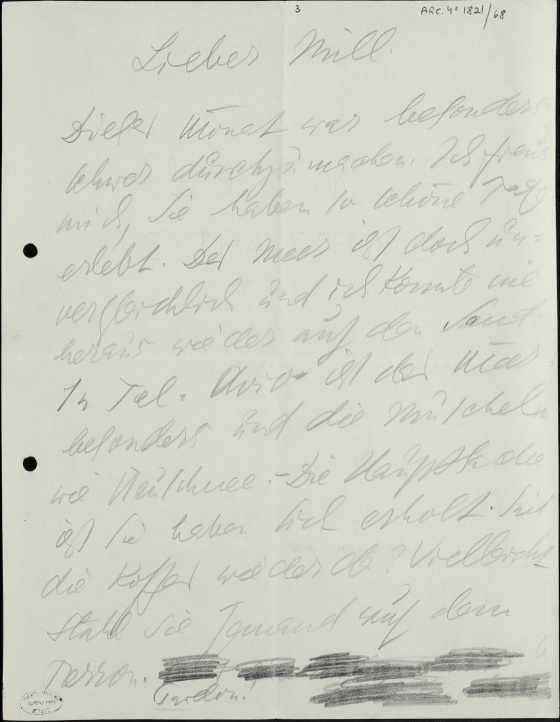 3
ARC. 4° 1821/68
Lieber Will.
Dieser Monat war besonders
schwer durchzumachen. Ich freue
mich, Sie haben so schöne Tage
erlebt. Das Meer ist doch un=
vergleichlich und ich konnte nie
heraus wieder auf den Sand.
In Tel-Aviv ist das Meer
besonders und die Muscheln
wie Neuschnee. – Die Hauptsache
ist Sie haben sich erholt. Sind
die Koffer wieder da? Vielleicht
stahl sie Jemand auf dem
Perron.
Pardon!